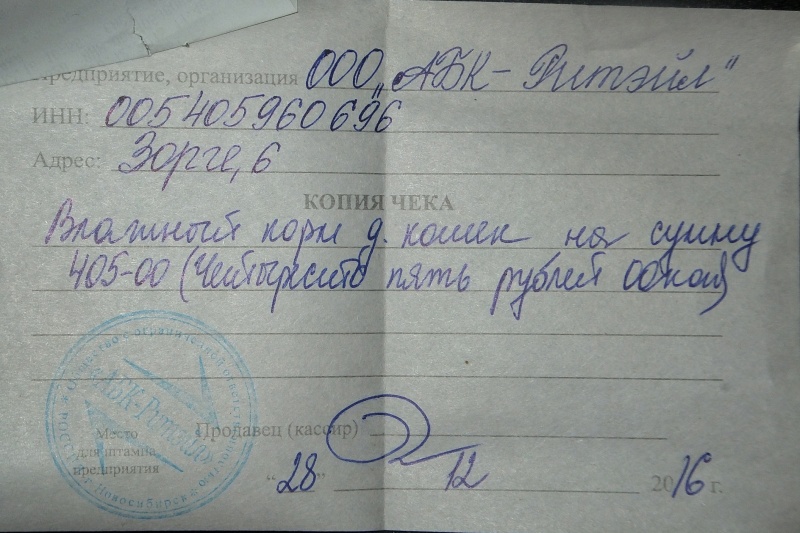 Предприятие, организация ООО „АБК-Ритэйл"
ИНН: 005405960696
Адрес: Зорге, 6
КОПИЯ ЧЕКА
Влажный корм д. кошек на сумму
405-00 (Четыреста пять рублей 00коп)
Общество с ограниченной ответственностью
"АБК-Ритэйл"
г. Новосибирск
Место
для штампа
предприятия
Продавец (кассир)
"28" 12 2016 г.